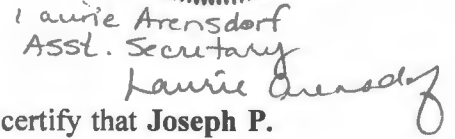 Laurie Arensdorf
Asst. Secretary
Laurie Arensdorf
certify that Joseph P.